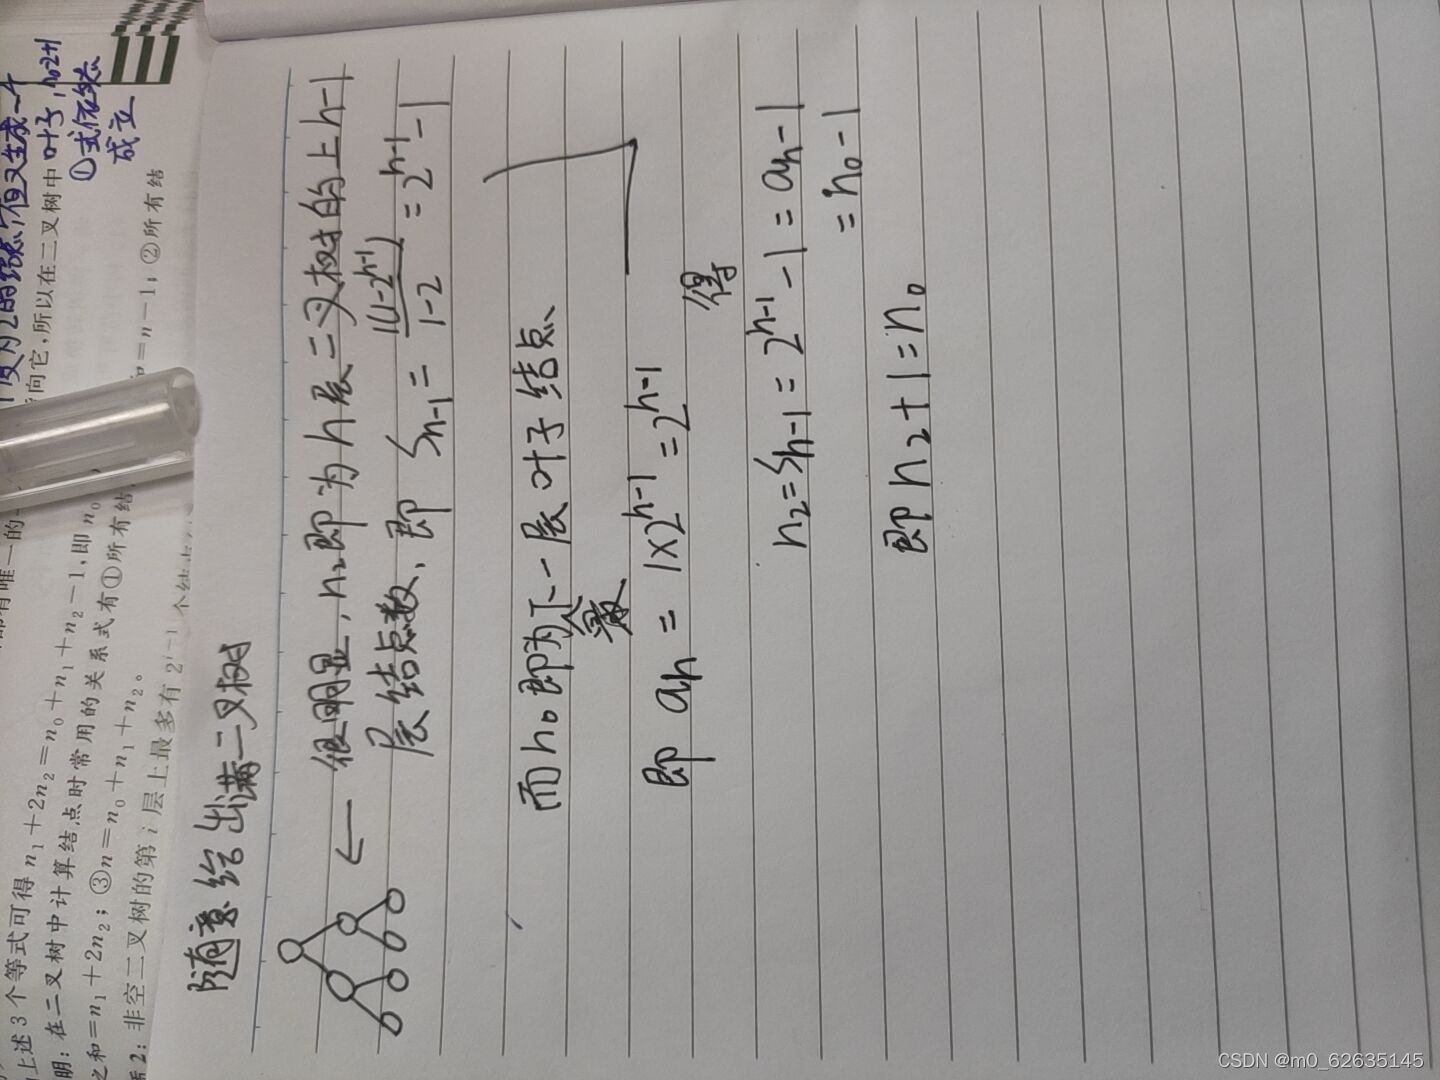 上述3个等式可得 n₁+2n₂=n₀+n₁+n₂-1,即 n₀
明:在二叉树中计算结点时常用的关系式有①所有结
之和=n₁+2n₂;③n=n₀+n₁+n₂。
2:非空二叉树的第 i 层上最多有 2ⁱ⁻¹ 个结
向它,所以在二叉树中
=n-1;②所有结
度为2的结点,但又生成一个
叶子,n₀2+1
①式依然
成立
随意给出满二叉树
← 很明显,n₂即为h层二叉树的上h-1
层结点数,即 Sₕ₋₁ = 1(1-2ʰ⁻¹)/1-2 = 2ʰ⁻¹-1
而n₀即为下一层叶子结点
个数
即 aₕ = 1×2ʰ⁻¹ = 2ʰ⁻¹
得
n₂=Sₕ₋₁=2ʰ⁻¹-1=aₕ-1
=n₀-1
即 n₂+1=n₀
CSDN @m0_62635145